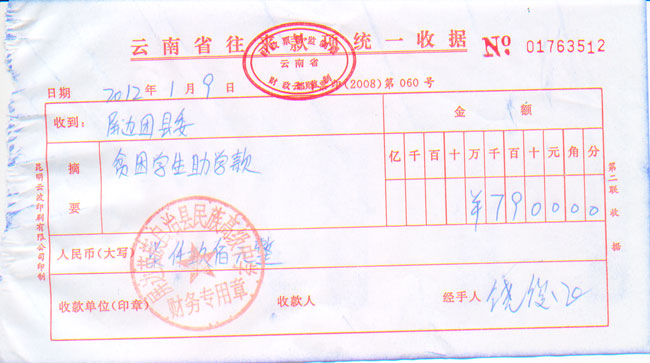 云南省往来款项统一收据 Nº 01763512
财政票据监制
云南省
财政部监制
日期 2012年1月9日 (2008)第060号
收到: 屏边团县委
金 额
摘要 贫困学生助学款
亿千百十万千百十元角分
¥790000
人民币(大写) 柒仟玖佰元整
收款单位(印章) 收款人 经手人
自治县民族
财务专用章
第二联收据
昆明云波印刷有限公司印制